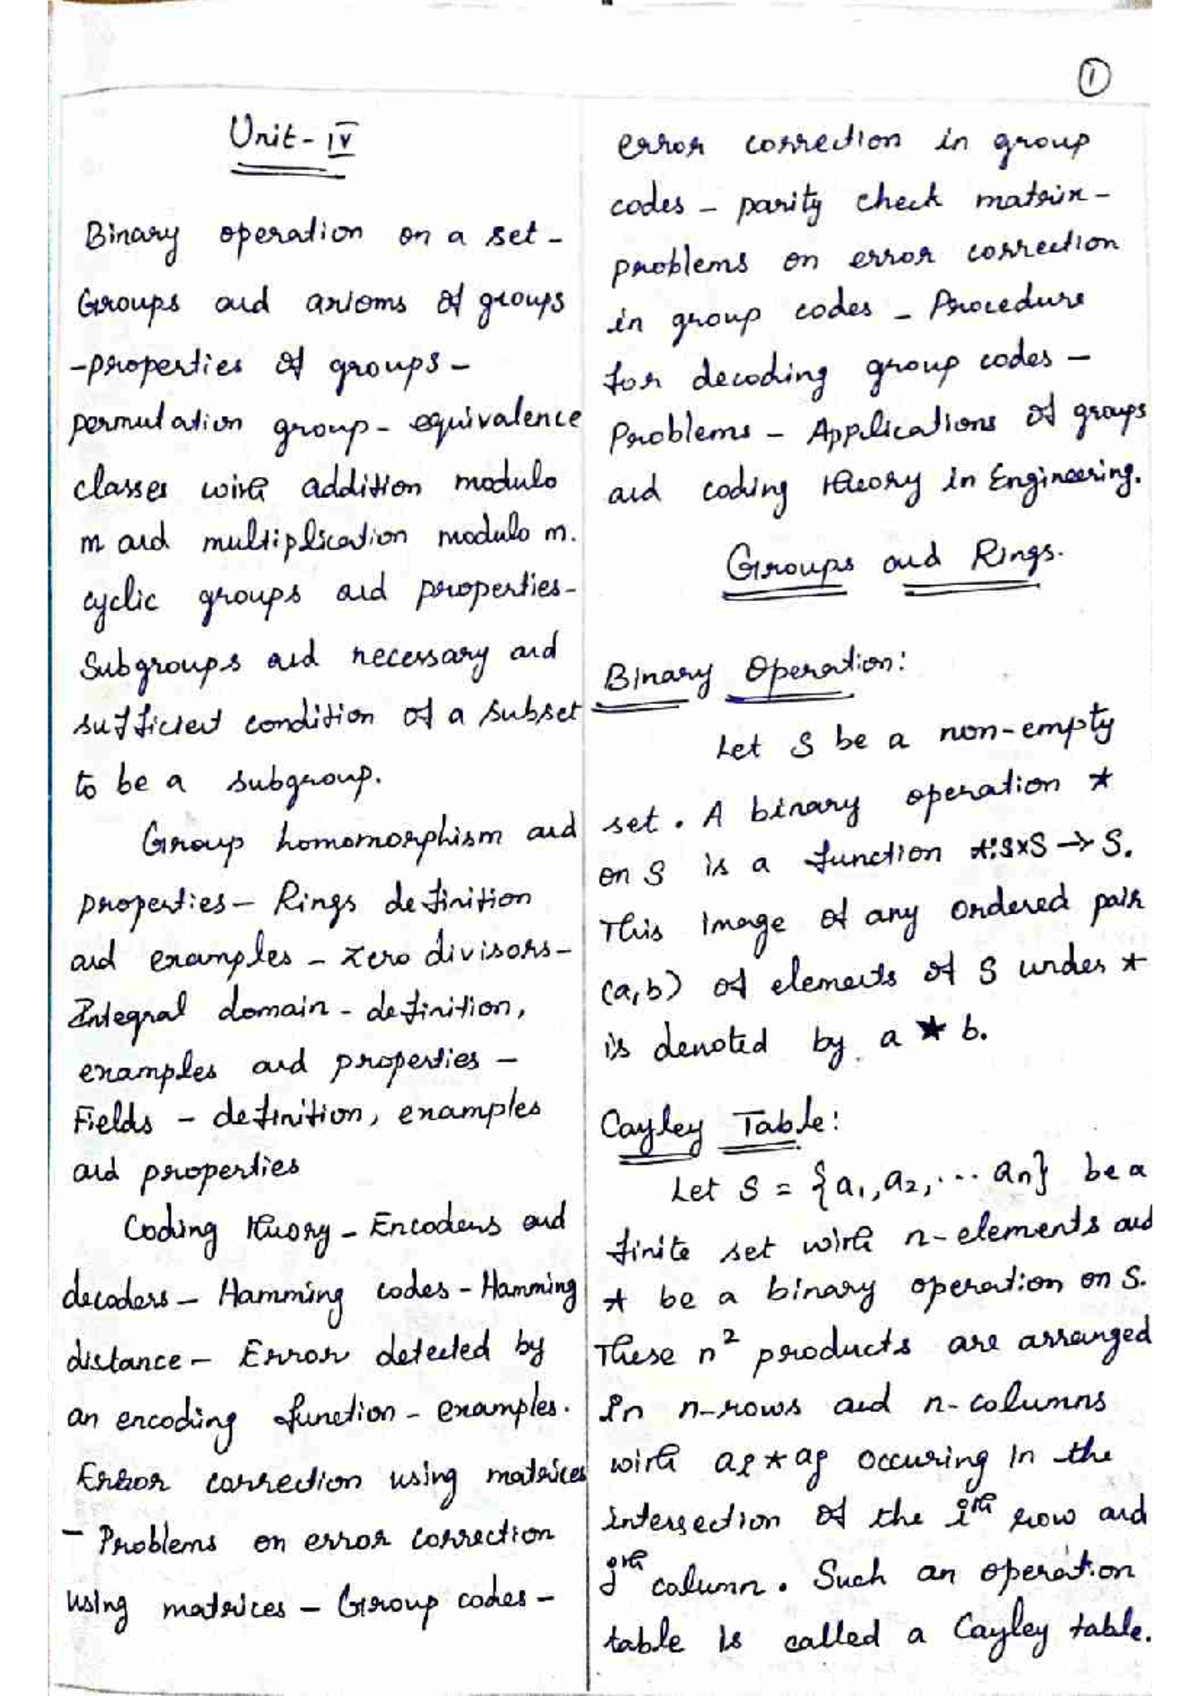 1
Unit - IV
Binary operation on a set -
Groups and axioms of groups
- properties of groups -
permutation group - equivalence
classes with addition modulo
m and multiplication modulo m.
cyclic groups and properties -
Subgroups and necessary and
sufficient condition of a subset
to be a subgroup.
Group homomorphism and
properties - Rings definition
and examples - Zero divisors -
Integral domain - definition,
examples and properties -
Fields - definition, examples
and properties
Coding theory - Encoders and
decoders - Hamming codes - Hamming
distance - Error detected by
an encoding function - examples.
Error correction using matrices
- Problems on error correction
using matrices - Group codes -
error correction in group
codes - parity check matrix -
problems on error correction
in group codes - Procedure
for decoding group codes -
Problems - Applications of groups
and coding theory in Engineering.
Groups and Rings.
Binary Operation:
Let S be a non-empty
set. A binary operation ★
on S is a function ★: S×S → S.
This image of any ordered pair
(a,b) of elements of S under ★
is denoted by a ★ b.
Cayley Table:
Let S = {a₁, a₂, ... aₙ} be a
finite set with n-elements and
★ be a binary operation on S.
These n² products are arranged
in n-rows and n-columns
with aᵢ ★ aⱼ occuring in the
intersection of the iᵗʰ row and
jᵗʰ column. Such an operation
table is called a Cayley table.